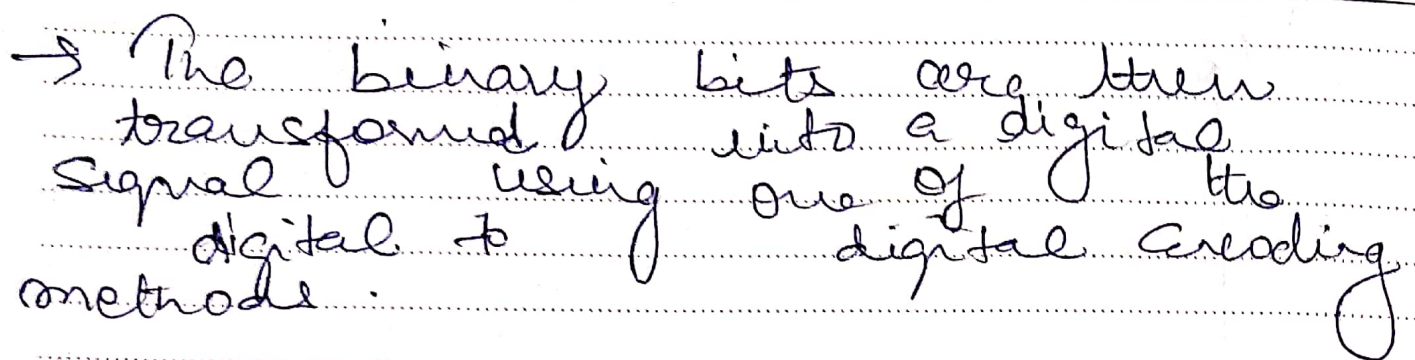 → The binary bits are then
transformed into a digital
signal using one of the
digital to digital encoding
methods.